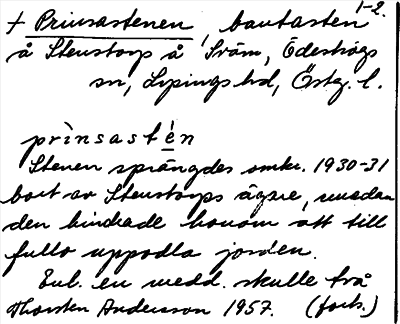 1-2.
+ Prinsastenen, bautasten
å Stenstorp å Sväm, Ödeshögs
sn, Lysings hd, Östg. l.
prinsasten
Stenen sprängdes omkr. 1930-31
bort av Stenstorps ägare, medan
den hindrade honom att till
fullo uppodla jorden.
Enl. en medd. skulle två
Thorsten Andersson 1957. (forts.)